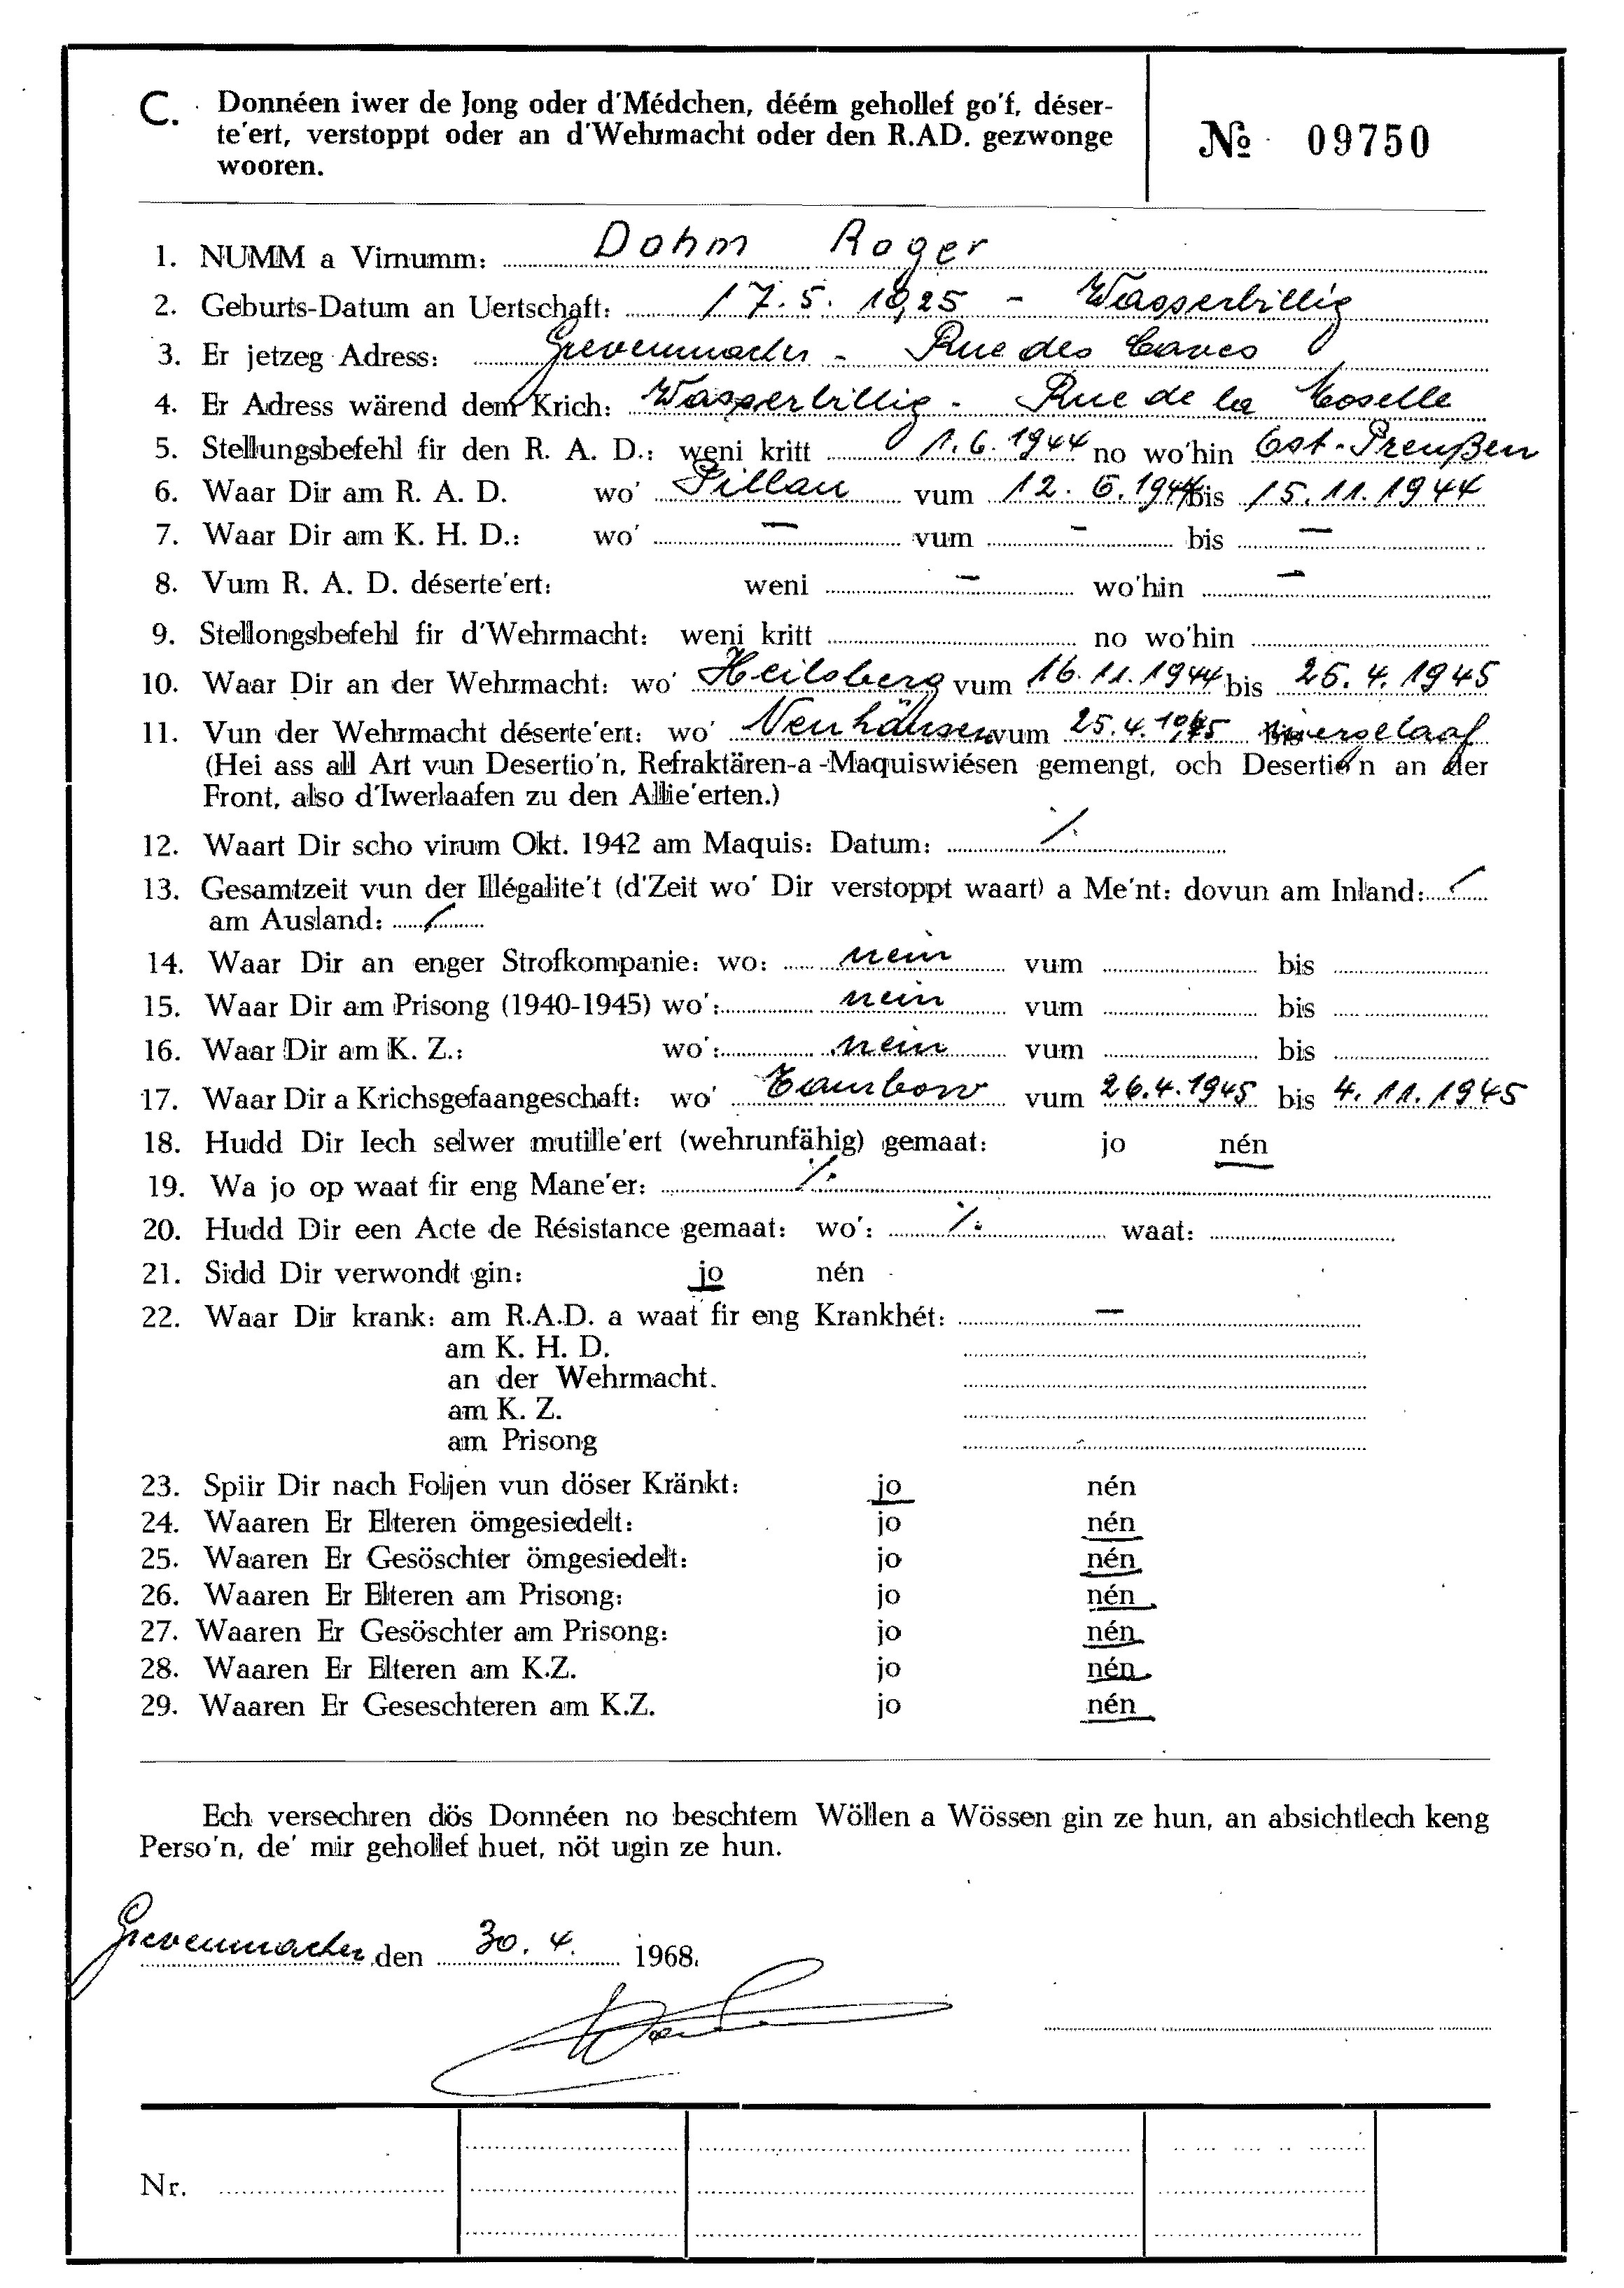 C. Donnéen iwer de Jong oder d'Médchen, déém gehollef go'f, déser-
te'ert, verstoppt oder an d'Wehrmacht oder den R.AD. gezwonge
wooren.
№ 09750
1. NUMM a Virnumm: Dohm Roger
2. Geburts-Datum an Uertschaft: 17.5.1925 - Wasserbillig
3. Er jetzeg Adress: Grevenmacher - Rue des Caves
4. Er Adress wärend dem Krich: Wasserbillig - Rue de la Moselle
5. Stellungsbefehl fir den R. A. D.: weni kritt 1.6.1944 no wo'hin Ost-Preußen
6. Waar Dir am R. A. D. wo' Pillau vum 12.6.1944 bis 15.11.1944
7. Waar Dir am K. H. D.: wo' — vum — bis —
8. Vum R. A. D. déserte'ert: weni — wo'hin —
9. Stellongsbefehl fir d'Wehrmacht: weni kritt no wo'hin
10. Waar Dir an der Wehrmacht: wo' Heilsberg vum 16.11.1944 bis 25.4.1945
11. Vun der Wehrmacht déserte'ert: wo' Neuhäuser vum 25.4.1945 bis
(Hei ass all Art vun Desertio'n, Refraktären-a-Maquiswiésen gemengt, och Desertio'n an der
Front, also d'Iwerlaafen zu den Allie'erten.)
12. Waart Dir scho virum Okt. 1942 am Maquis: Datum: ·/.
13. Gesamtzeit vun der Illégalite't (d'Zeit wo' Dir verstoppt waart) a Me'nt: dovun am Inland: /
am Ausland: /
14. Waar Dir an enger Strofkompanie: wo: nein vum bis
15. Waar Dir am Prisong (1940-1945) wo': nein vum bis
16. Waar Dir am K. Z.: wo': nein vum bis
17. Waar Dir a Krichsgefaangeschaft: wo' Tambow vum 26.4.1945 bis 4.11.1945
18. Hudd Dir Iech selwer mutille'ert (wehrunfähig) gemaat: jo nén
19. Wa jo op waat fir eng Mane'er: ·/.
20. Hudd Dir een Acte de Résistance gemaat: wo': ·/. waat:
21. Sidd Dir verwondt gin: jo nén
22. Waar Dir krank: am R.A.D. a waat fir eng Krankhét: —
am K. H. D.
an der Wehrmacht.
am K. Z.
am Prisong
23. Spiir Dir nach Foljen vun döser Kränkt: jo nén
24. Waaren Er Elteren ömgesiedelt: jo nén
25. Waaren Er Gesöschter ömgesiedelt: jo nén
26. Waaren Er Elteren am Prisong: jo nén
27. Waaren Er Gesöschter am Prisong: jo nén
28. Waaren Er Elteren am K.Z. jo nén
29. Waaren Er Geseschteren am K.Z. jo nén
Ech versechren dös Donnéen no beschtem Wöllen a Wössen gin ze hun, an absichtlech keng
Perso'n, de' mir gehollef huet, nöt ugin ze hun.
Grevenmacher, den 30.4. 1968.
Nr.